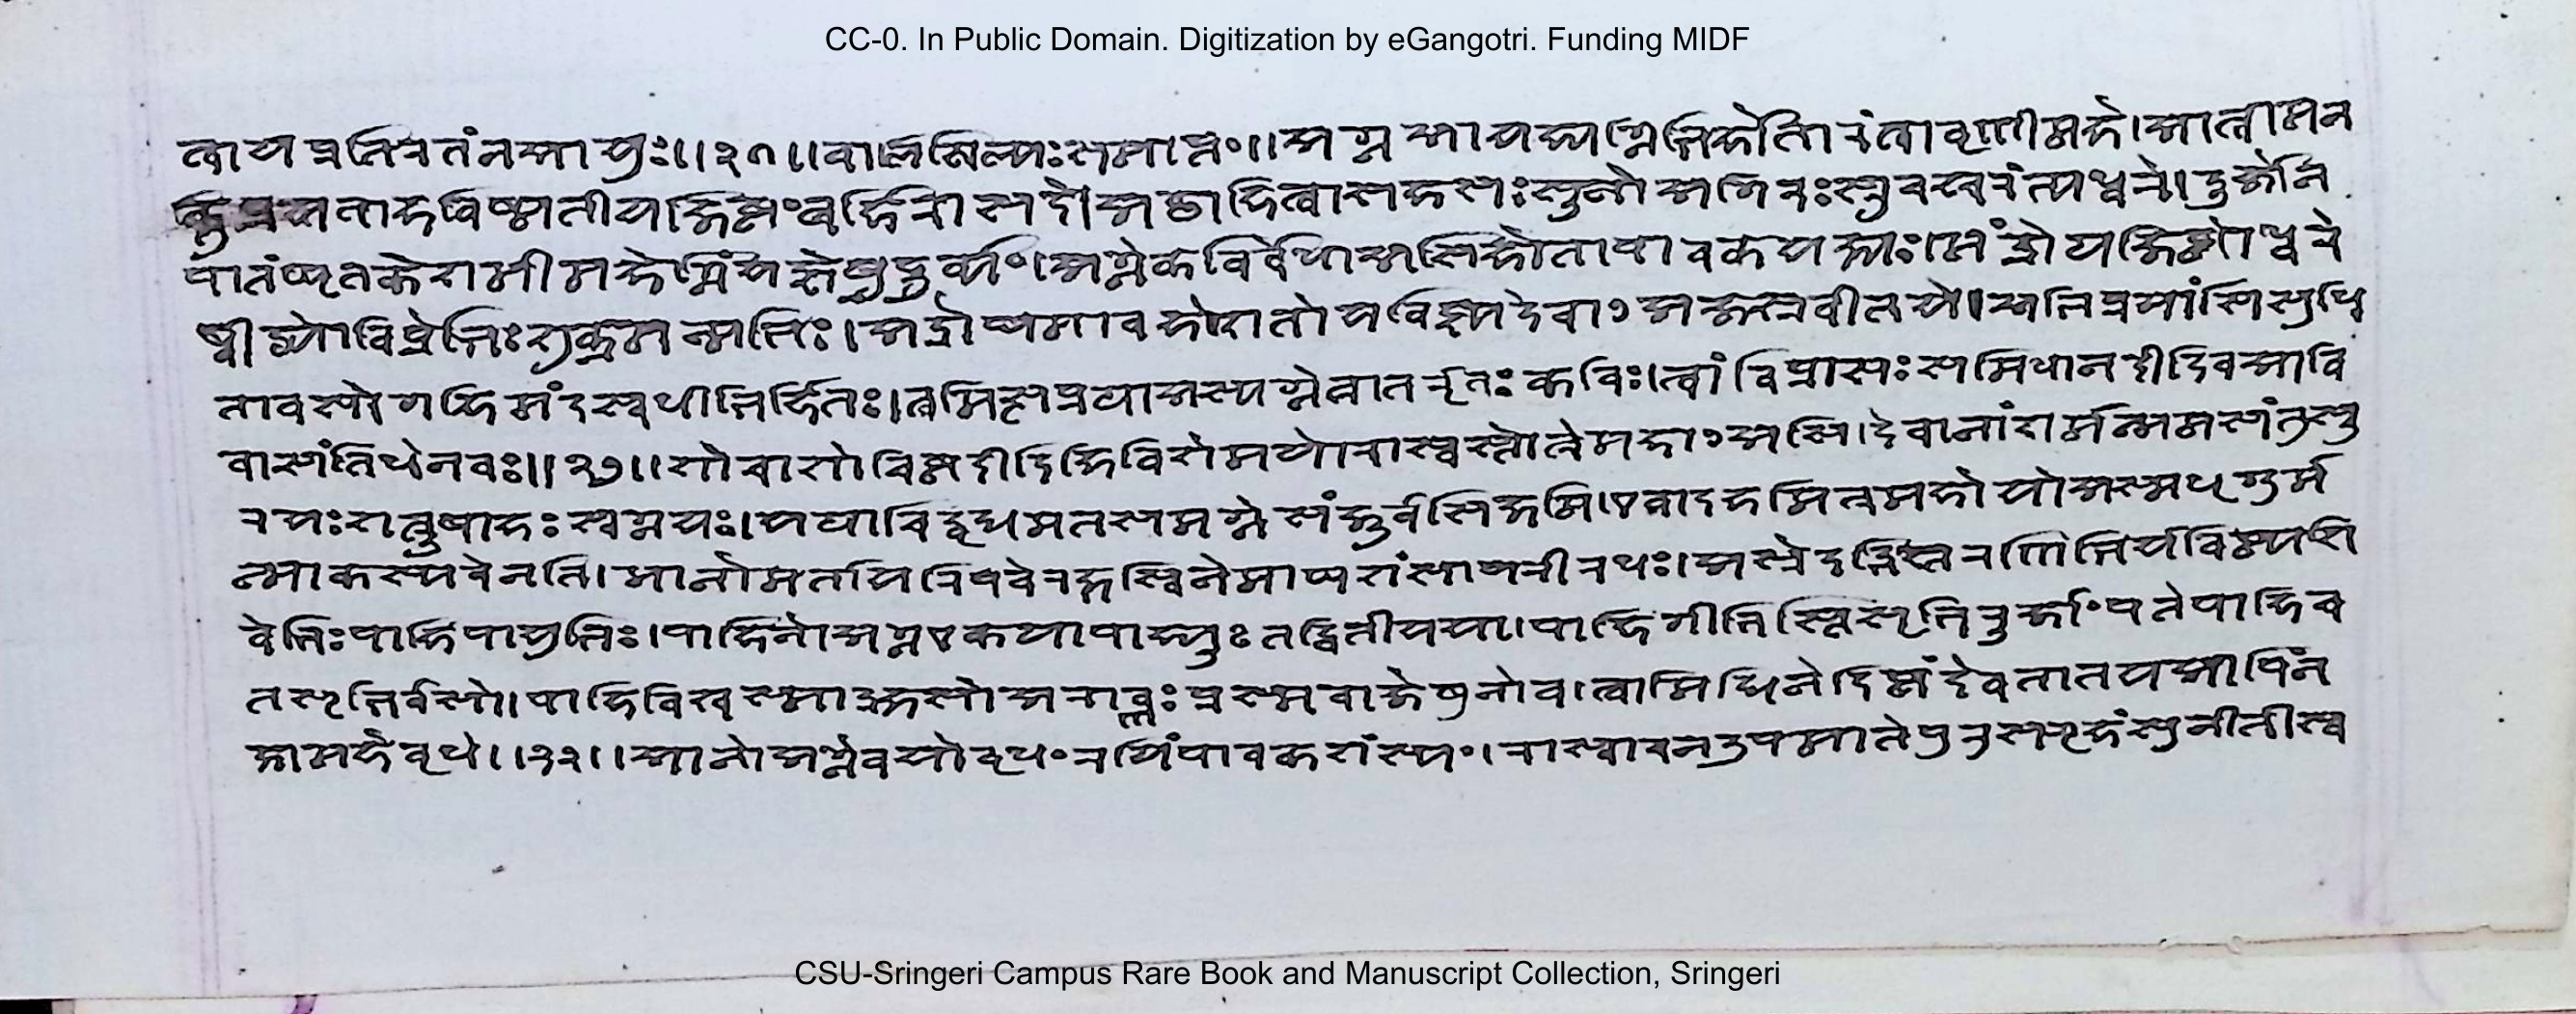 त्वाय प्रतिरतं न आयुः॥३१॥वालखिल्यः समाप्तं॥अग्न आ याह्यग्निभिर्होतारं त्वा वृणीमहे।आ त्वामन
क्तु प्रयता हविष्मती यजिष्ठं बर्हिरासदे।अच्छा हि त्वा सहसः सूनो अंगिरः स्रुचश्चरंत्यध्वरे।ऊर्जो न
पातं घृतकेशमीमहेग्निं यज्ञेषु पूर्व्यं।अग्ने कविर्वेधा असि होता पावक यक्ष्यः।मंद्रो यजिष्ठो अध्वरे
ष्वीड्यो विप्रेभिः शुक्र मन्मभिः।अद्रोघमा वहोशतो यविष्ठ्य देवाँ अजस्र वीतये।अभि प्रयांसि सुधि
ता वसो गहि मंदस्व धीतिभिर्हितः।त्वमित्सप्रथा अस्यग्ने त्रातर्ऋतः कविः।त्वां विप्रासः समिधान दीदिव आ वि
वासंति वेधसः॥३२॥शोचा शोचिष्ठ दीदिहि विशे मयो रास्व स्तोत्रे महाँ असि।देवानां शर्मन्मम संतु सू
रयः शत्रूषाहः स्वग्नयः।यथा चिद्वृद्धमतसमग्ने संजूर्वसि क्षमि।एवा दह मित्रमहो यो अस्मध्रुग्दुर्म
न्मा कश्च वेनति।मा नो मर्ताय रिपवे रक्षस्विने माघशंसाय रीरधः।अस्रेधद्भिस्तरणिभिर्यविष्ठ्य शि
वेभिः पाहि पायुभिः।पाहि नो अग्न एकया पाह्युत द्वितीयया।पाहि गीर्भिस्तिसृभिरूर्जां पते पाहि च
तसृभिर्वसो।पाहि विश्वस्माद्रक्षसो अराव्णः प्र स्म वाजेषु नोव।त्वामिद्धि नेदिष्ठं देवतातय आपिं न
क्षामहे वृधे॥३३॥आ नो अग्ने वयोवृधं रयिं पावक शंस्यं।रास्वा च न उपमाते पुरुस्पृहं सुनीती स्व
CC-0. In Public Domain. Digitization by eGangotri. Funding MIDF
CSU-Sringeri Campus Rare Book and Manuscript Collection, Sringeri